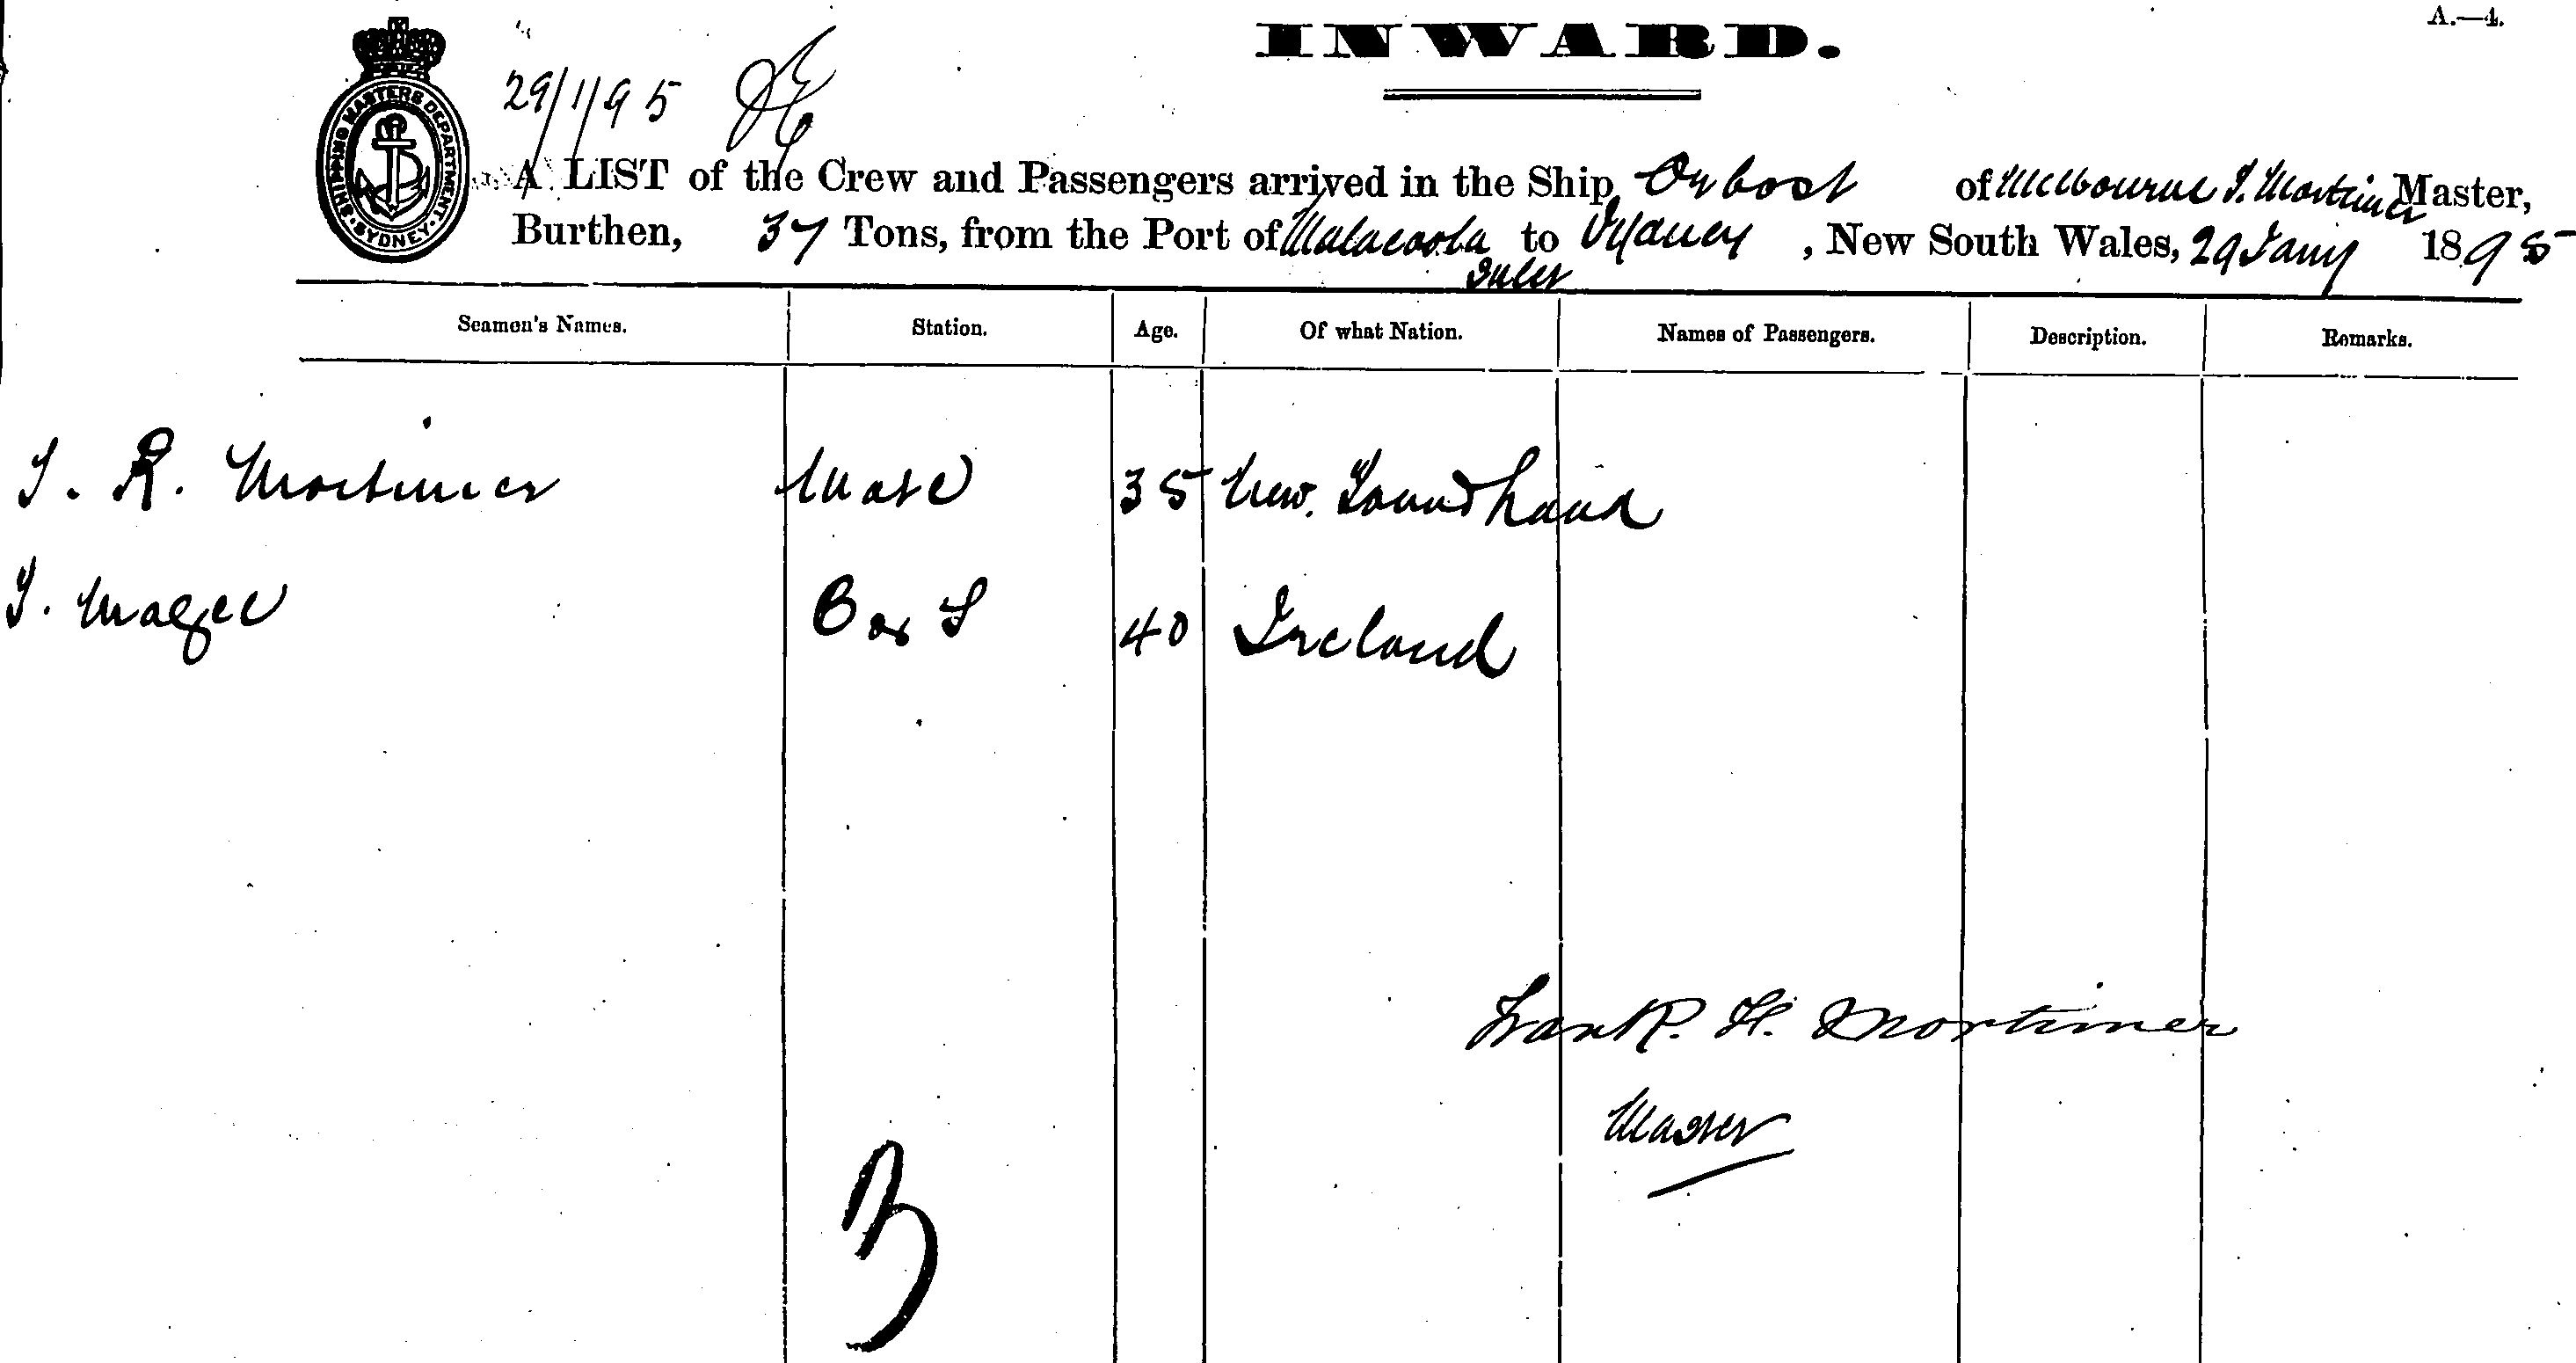 INWARD.
A.—4.
SHIPPING MASTERS DEPARTMENT. SYDNEY.
29/1/95
A LIST of the Crew and Passengers arrived in the Ship Orbost of Melbourne F. Mortimer Master,
Burthen, 37 Tons, from the Port of Malacoota Inlet to Sydney, New South Wales, 29 Jany 1895
Seamen's Names. Station. Age. Of what Nation. Names of Passengers. Description. Remarks.
R. Mortimer Mate 35 New Foundland
Magee 40 Ireland
Frank. H. Mortimer
Master
3